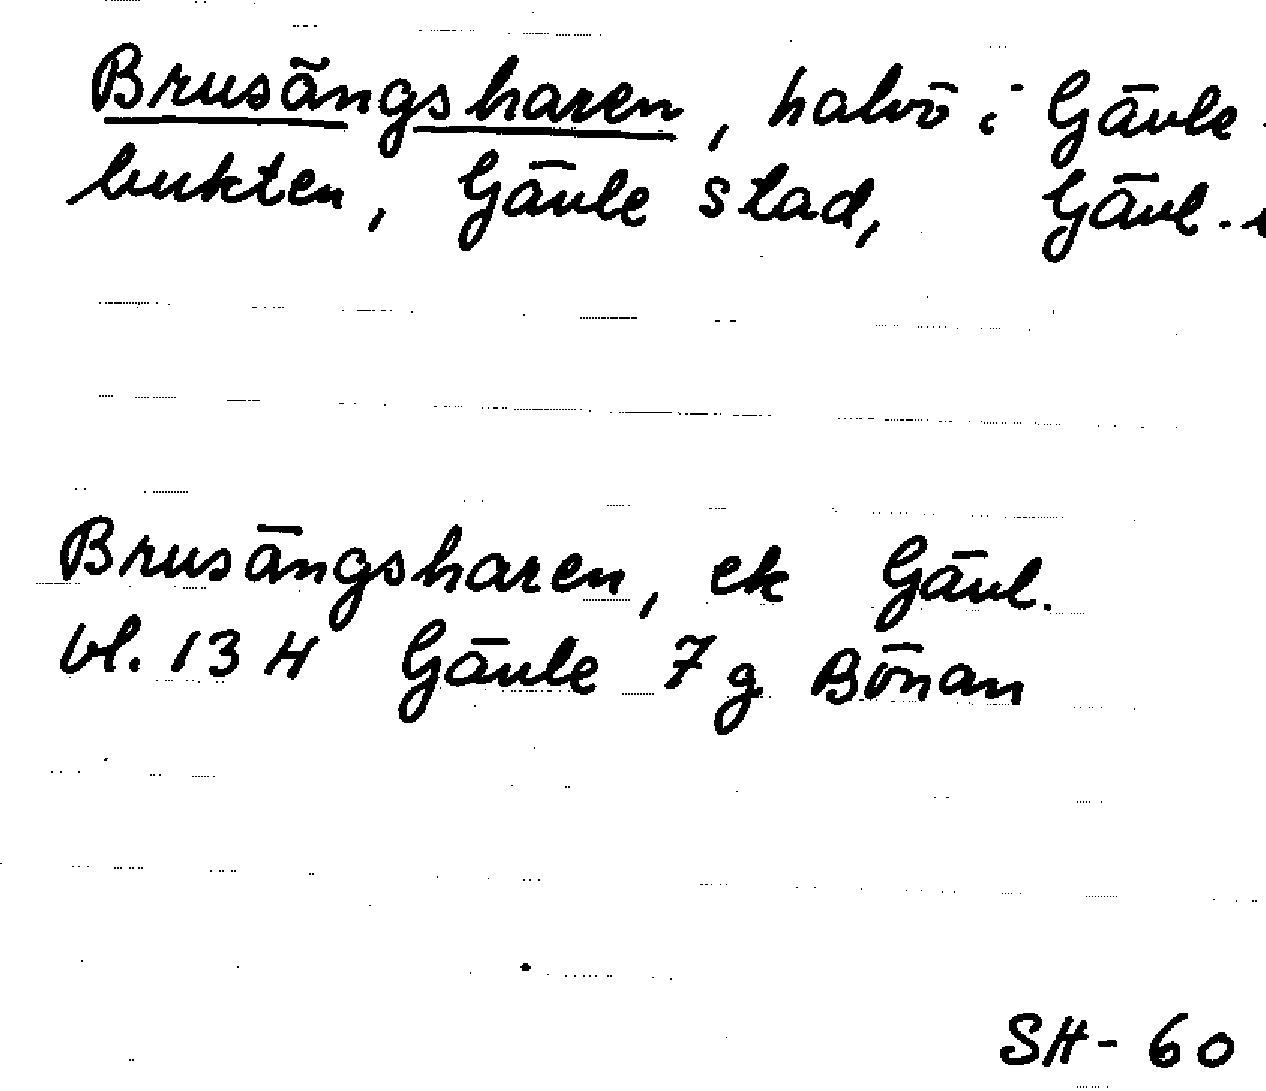 Brusängsharen, halvö i Gävle-
bukten, Gävle stad, Gävl.
Brusängsharen, ek Gävl.
bl. 13 H Gävle 7 g Bönan
SH-60